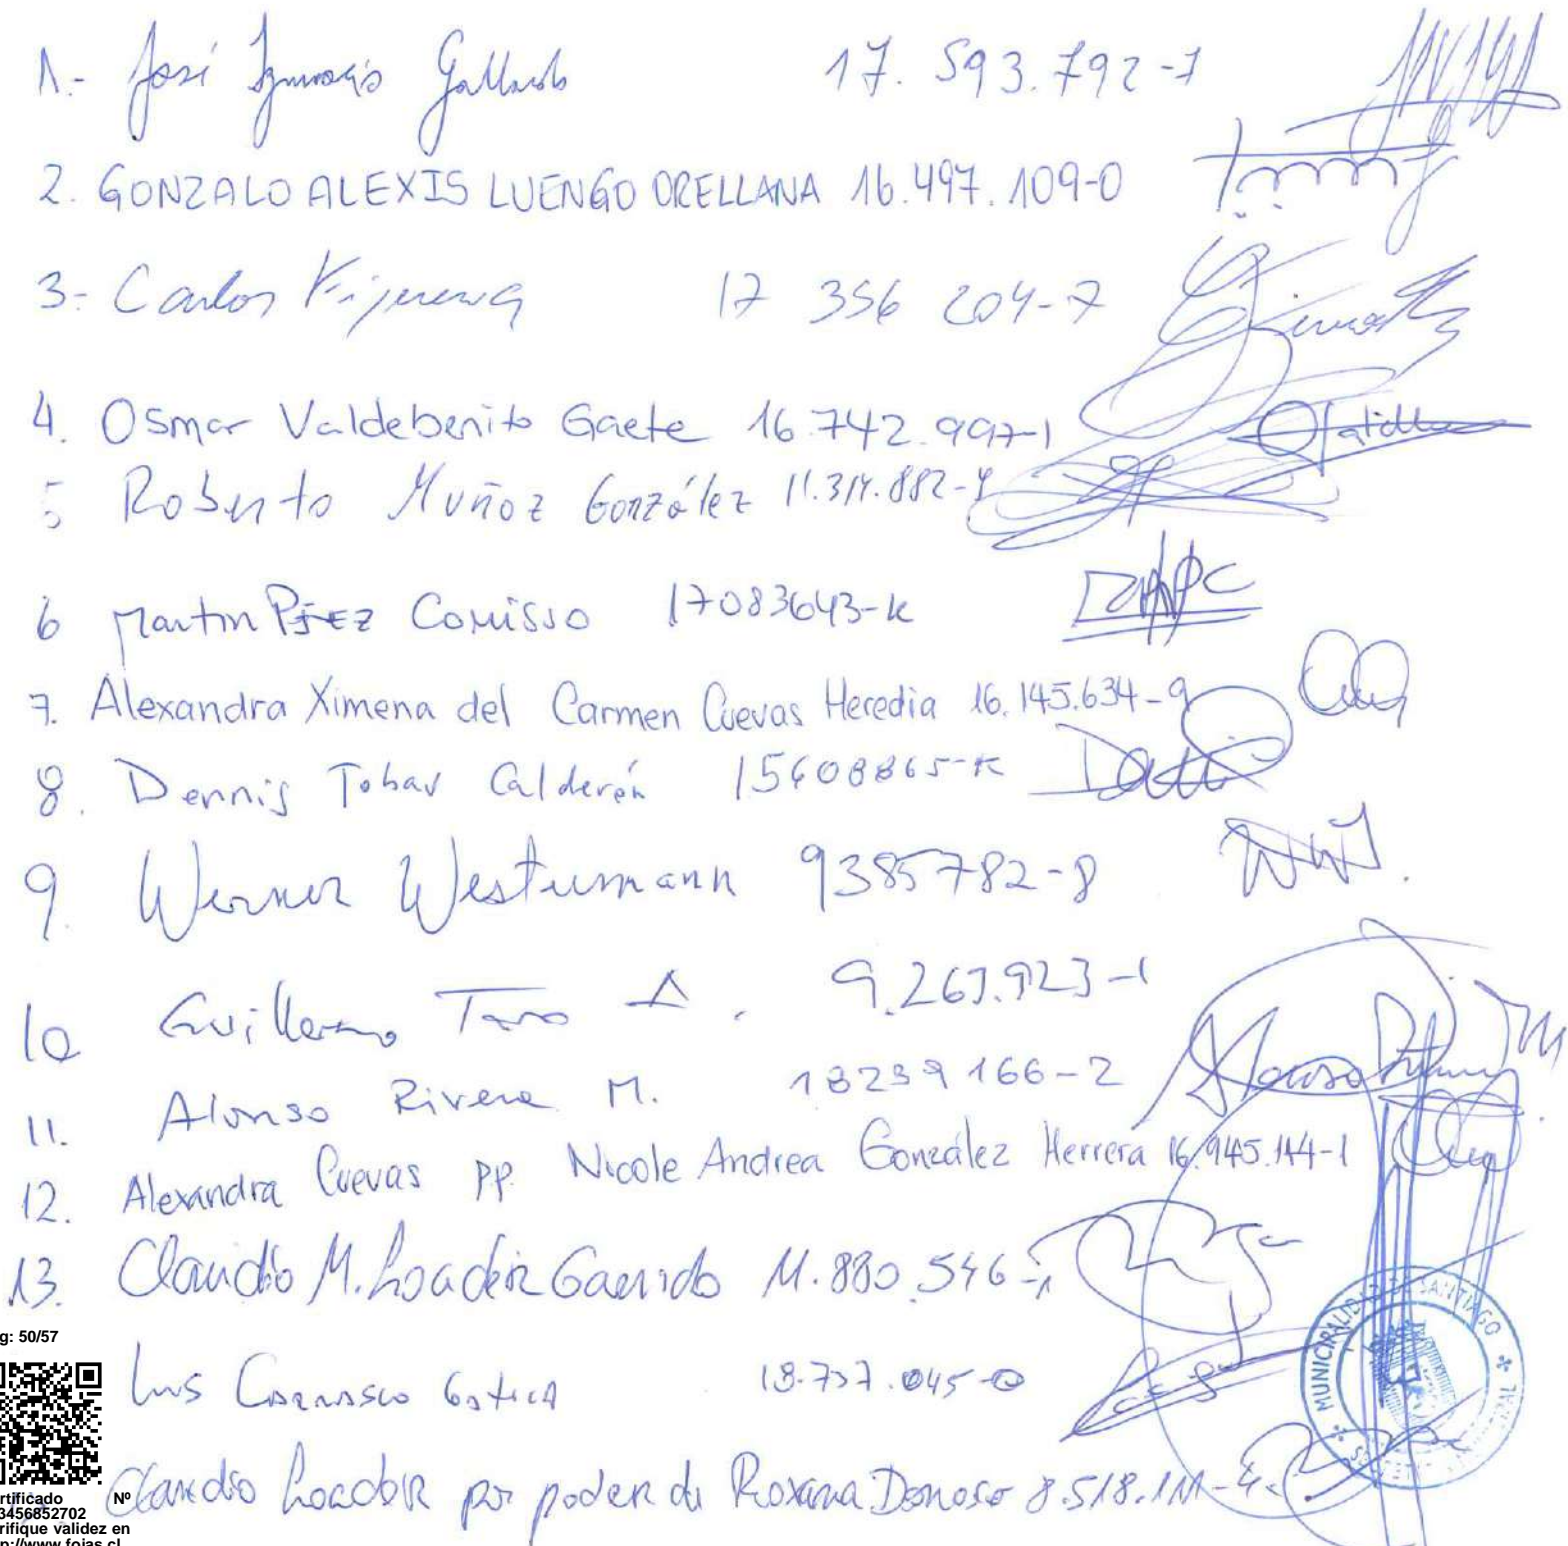 1.- José Ignacio Gallardo 17.593.792-7
2. GONZALO ALEXIS LUENGO ORELLANA 16.497.109-0
3- Carlos Figueroa 17 356 204-7
4. Osmar Valdebenito Gaete 16.742.997-1
5 Roberto Muñoz González 11.314.882-4
6 Martin Pérez Comisso 17083643-K
7. Alexandra Ximena del Carmen Cuevas Heredia 16.145.634-9
8. Dennis Tobar Calderón 15608865-K
9. Werner Westermann 9385782-8
10 Guillermo Toro A. 9.263.923-1
11. Alonso Rivera M. 18239166-2
12. Alexandra Cuevas pp. Nicole Andrea González Herrera 16.945.144-1
13. Claudio M. Loader Garrido 11.880.546-1
g: 50/57
Luis Carrasco Gatica 18.737.045-0
MUNICIPALIDAD DE SANTIAGO
Claudio Loader por poder de Roxana Donoso 8.518.111-4.
rtificado Nº
3456852702
rifique validez en
p://www.fojas.cl